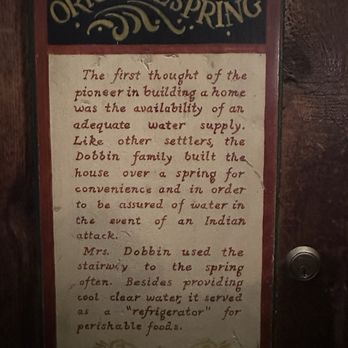 SPRING
The first thought of the
pioneer in building a home
was the availability of an
adequate water supply.
Like other settlers, the
Dobbin family built the
house over a spring for
convenience and in order
to be assured of water in
the event of an Indian
attack.
Mrs. Dobbin used the
stairway to the spring
often. Besides providing
cool clear water, it served
as a "refrigerator" for
perishable foods.